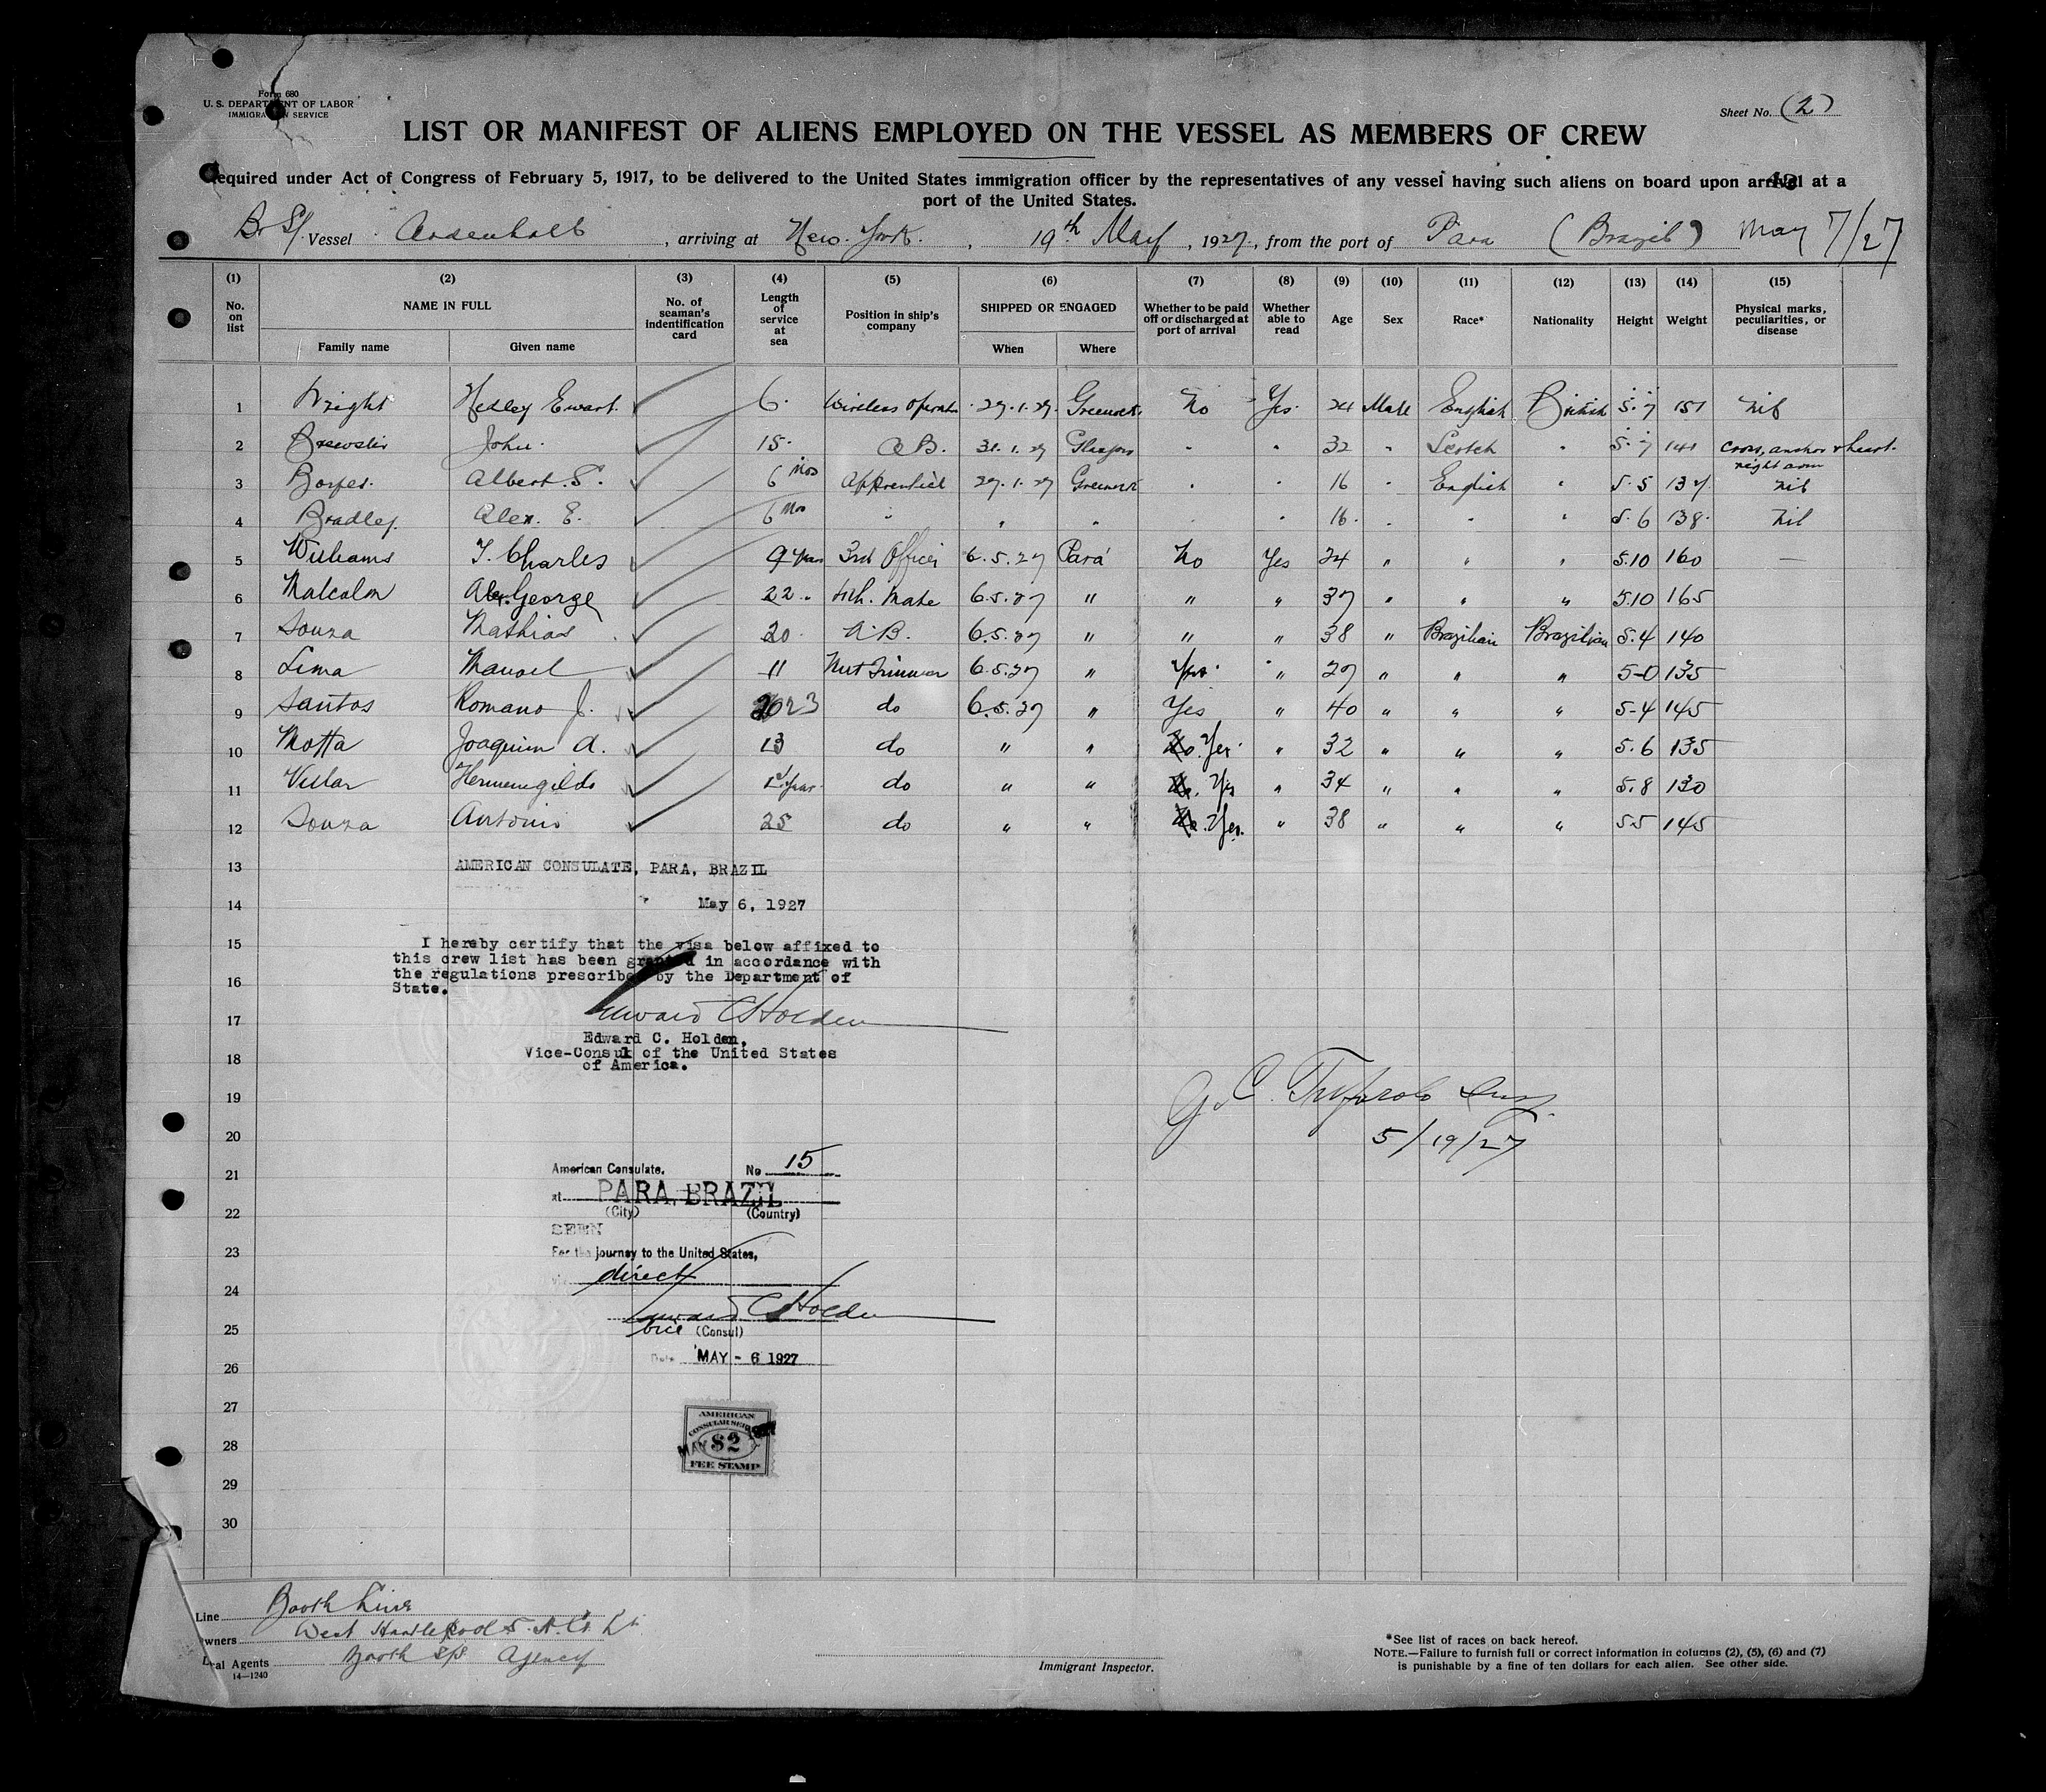 Form 680
U. S. DEPARTMENT OF LABOR
IMMIGRATION SERVICE
Sheet No. (2)
LIST OR MANIFEST OF ALIENS EMPLOYED ON THE VESSEL AS MEMBERS OF CREW
Required under Act of Congress of February 5, 1917, to be delivered to the United States immigration officer by the representatives of any vessel having such aliens on board upon arrival at a
port of the United States.
Vessel , arriving at New York. , 19th May , 1927, from the port of Para (Brazil) May 7/27
(1) (2) (3) (4) (5) (6) (7) (8) (9) (10) (11) (12) (13) (14) (15)
No. on list NAME IN FULL Family name Given name No. of seaman's indentification card Length of service at sea Position in ship's company SHIPPED OR ENGAGED When Where Whether to be paid off or discharged at port of arrival Whether able to read Age Sex Race* Nationality Height Weight Physical marks, peculiarities, or disease
1 Wright Hedley Ewart. 6. Wireless Operator 27.1.27. No Yes. 24 Male English British 5.7 151 Nil
2 Brewster John. 15. A B. 31.1.27 Glasgow " " 32 " Scotch " 5.7 141 cross, anchor & heart. right arm
3 Albert. S. 6 mos Apprentice 27.1.27 " " 16 " English " 5.5 137. Nil
4 Bradley. Alex. E. 6 mos " " " " " 16. " " " 5.6 138. Nil
5 Williams T. Charles 9 years 3rd Officer 6.5.27 Pará No Yes 24 " " " 5.10 160 —
6 Malcolm Alex. George 22 " 4th. Mate 6.5.27 " " " 37 " " " 5.10 165
7 Souza Mathias 20 A.B. 6.5.27 " " " 38 " Brazilian Brazilian 5.4 140
8 Lima Manoel 11 Nut Trimmer 6.5.27 " Yes " 27 " " " 5-0 135
9 Santos Romano J. 23 do 6.5.27 " Yes " 40 " " " 5-4 145
10 Motta Joaquim A. 13 do " " No. Yes. " 32 " " " 5.6 135
11 Hermenegildo 1 year do " " No. Yes " 34 " " " 5.8 130
12 Souza Antonio 25 do " " No. Yes. " 38 " " " 5.5 145
13 AMERICAN CONSULATE, PARA, BRAZIL
14 May 6, 1927
15 I hereby certify that the visa below affixed to
this crew list has been granted in accordance with
16 the regulations prescribed by the Department of
State.
17 Edward C Holden
Edward C. Holden,
18 Vice-Consul of the United States
of America.
19 G. C.
20 5/19/27
21 American Consulate. No 15
at PARA, BRAZIL
22 (City) (Country)
SEEN
23 For the journey to the United States,
via direct
24 Edward C Holden
25 Vice (Consul)
26 Date MAY - 6 1927
27 AMERICAN
CONSULAR SERVICE
28 MAY $2 1927
FEE STAMP
29
30
Line Booth Line
Owners West Hartlepool S. N. Co. Lt.
Local Agents Booth S/S Agency
14—1240
Immigrant Inspector.
*See list of races on back hereof.
NOTE.—Failure to furnish full or correct information in columns (2), (5), (6) and (7)
is punishable by a fine of ten dollars for each alien. See other side.